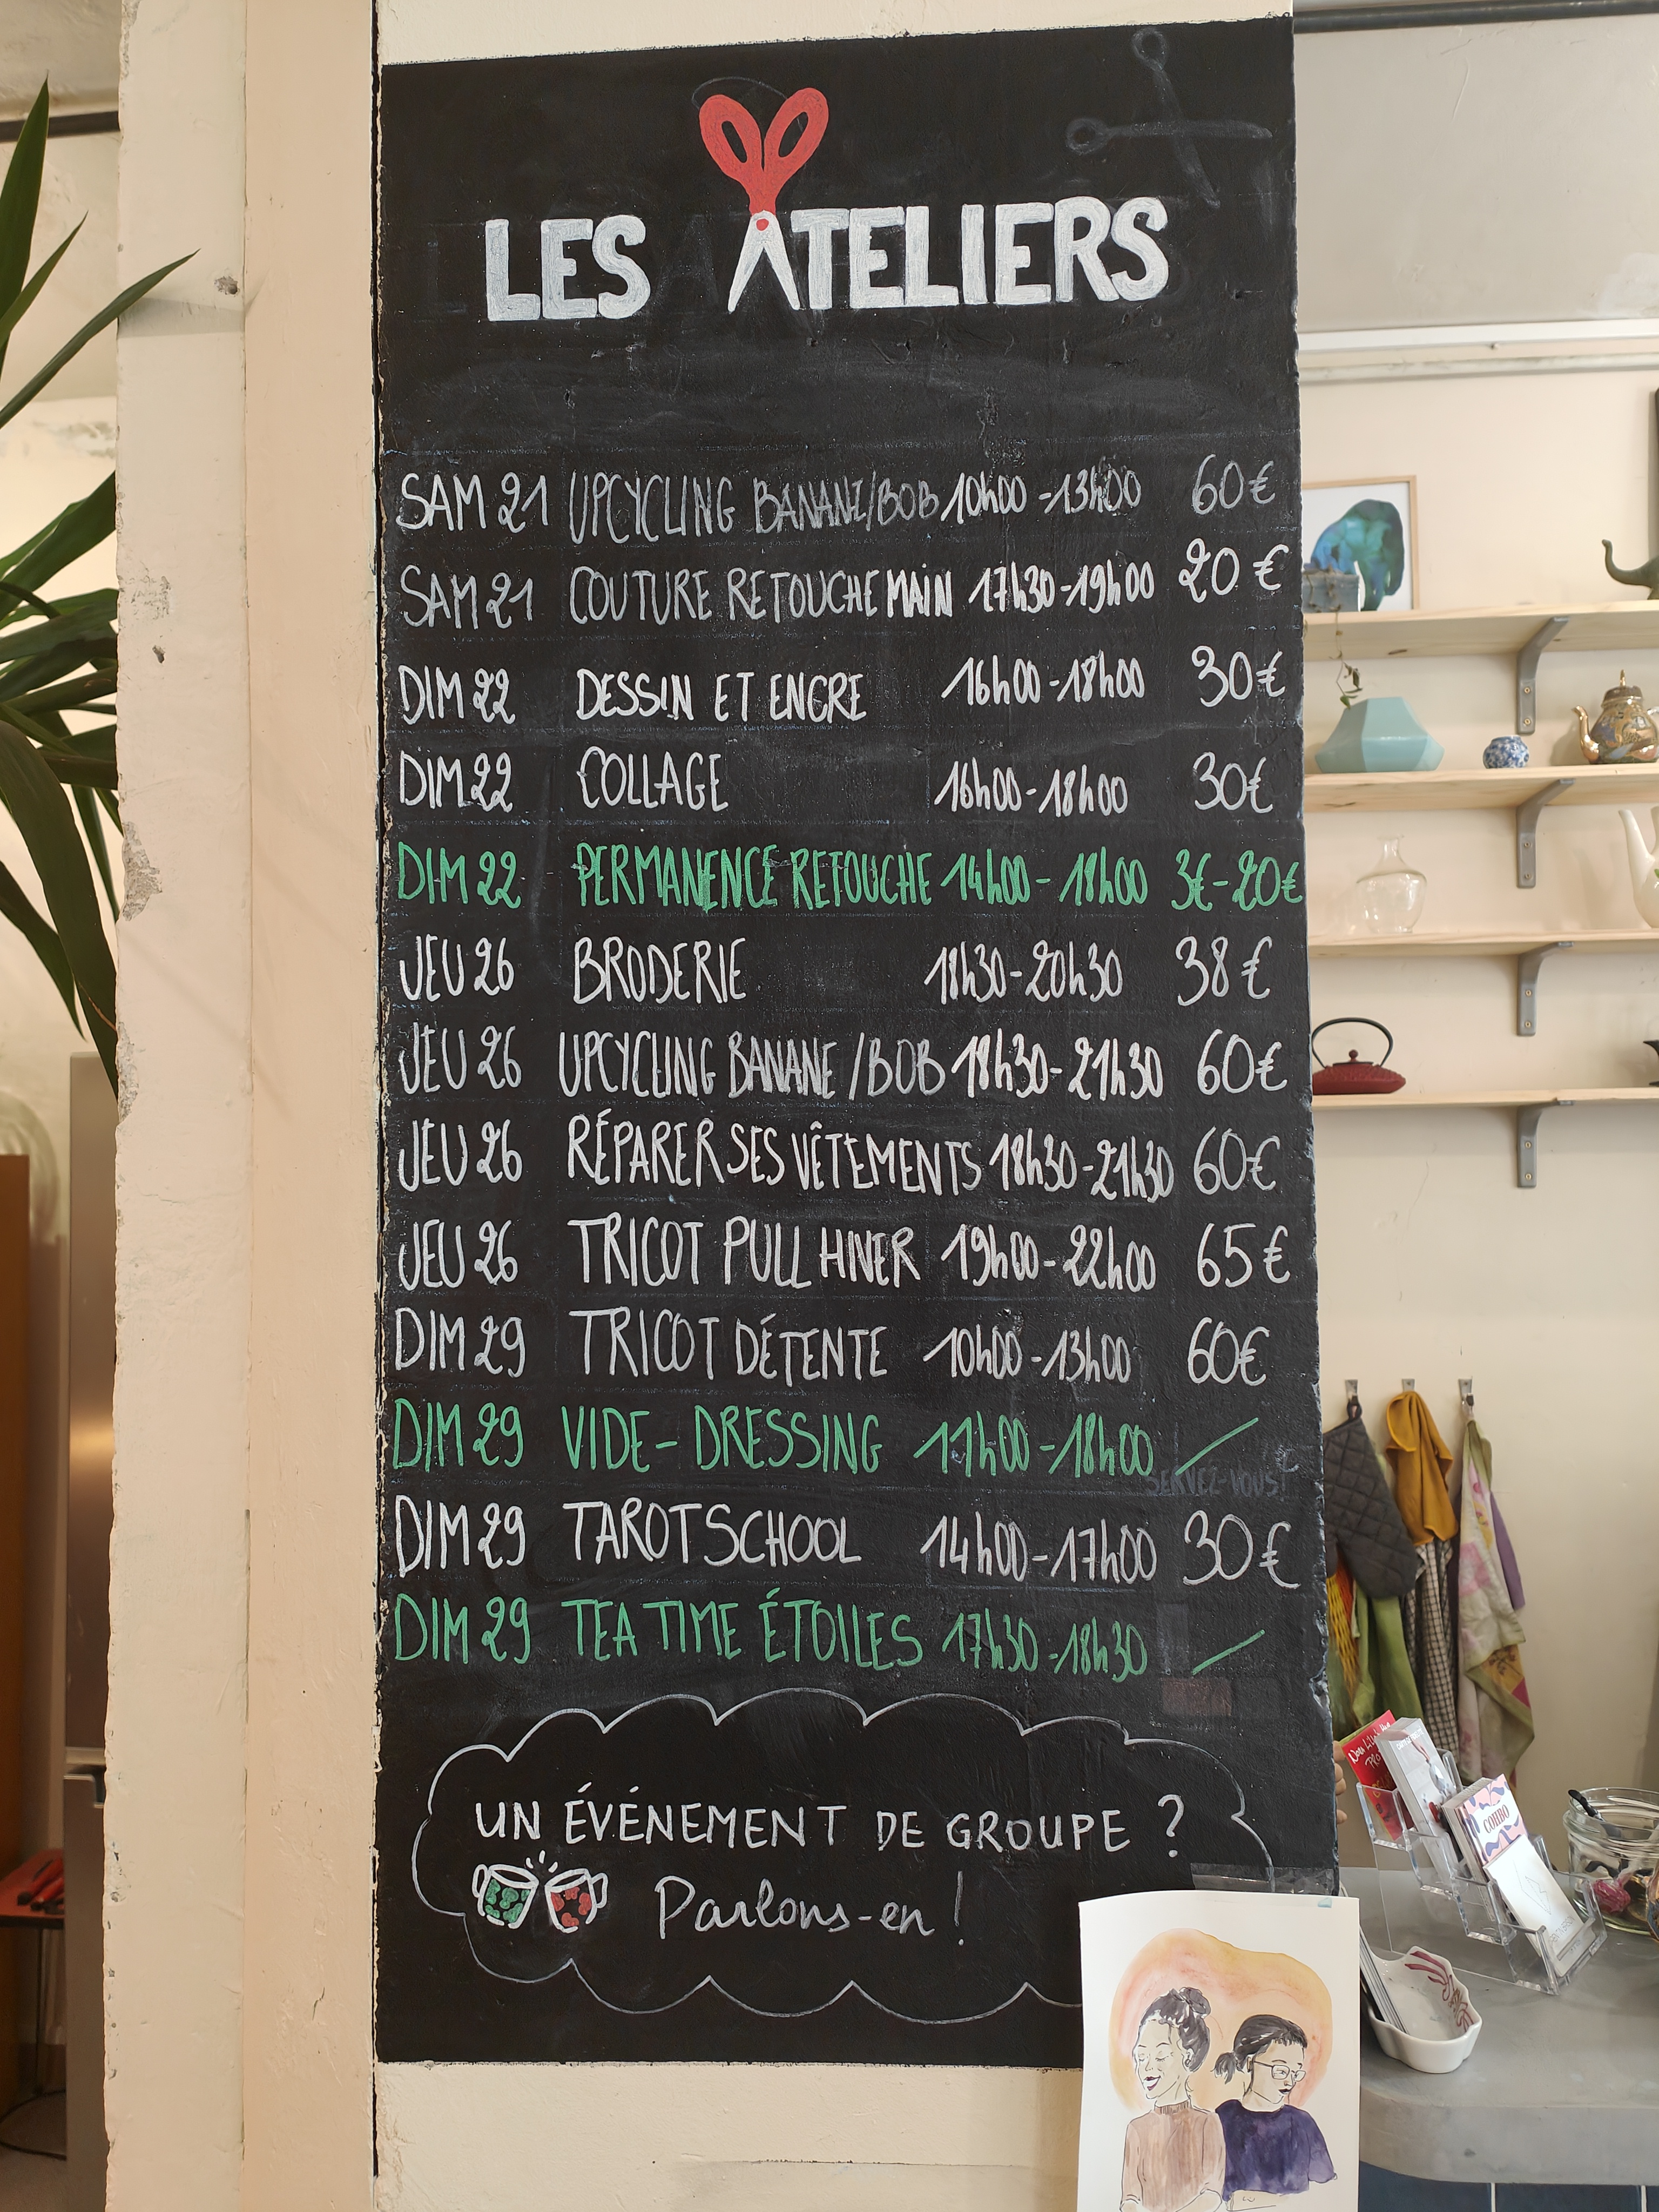 LES ATELIERS
SAM 21 UPCYCLING BANANE/BOB 10h00-13h00 60€
SAM 21 COUTURE RETOUCHE MAIN 17h30-19h00 20€
DIM 22 DESSIN ET ENCRE 16h00-18h00 30€
DIM 22 COLLAGE 16h00-18h00 30€
DIM 22 PERMANENCE RETOUCHE 14h00-18h00 3€-20€
JEU 26 BRODERIE 18h30-20h30 38€
JEU 26 UPCYCLING BANANE/BOB 18h30-21h30 60€
JEU 26 RÉPARER SES VÊTEMENTS 18h30-21h30 60€
JEU 26 TRICOT PULL HIVER 19h00-22h00 65€
DIM 29 TRICOT DÉTENTE 10h00-13h00 60€
DIM 29 VIDE-DRESSING 11h00-18h00 /
SERVEZ-VOUS!
DIM 29 TAROT SCHOOL 14h00-17h00 30€
DIM 29 TEA TIME ÉTOILES 17h30-18h30 /
UN ÉVÉNEMENT DE GROUPE ?
Parlons-en !
COMBO